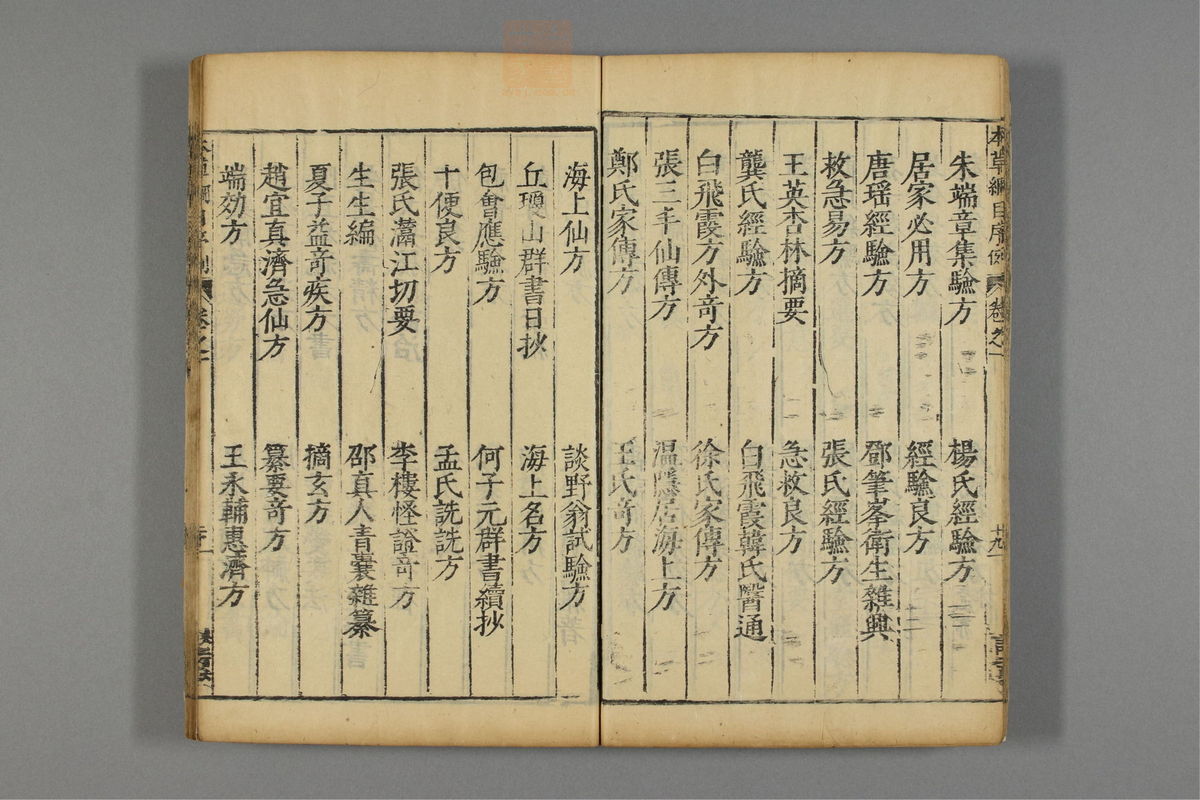 本草綱目序例 卷之一 十九
朱端章集驗方 楊氏經驗方
居家必用方 經驗良方
唐瑶經驗方 鄧筆峯衛生雜興
救急易方 張氏經驗方
王英杏林摘要 急救良方
龔氏經驗方 白飛霞韓氏醫通
白飛霞方外奇方 徐氏家傳方
張三丰仙傳方 溫隱居海上方
鄭氏家傳方 王氏奇方
海上仙方 談野翁試驗方
丘瓊山群書日抄 海上名方
包會應驗方 何子元群書續抄
十便良方 孟氏詵詵方
張氏灊江切要 李樓怪證奇方
生生編 邵真人青囊雜纂
夏子益奇疾方 摘玄方
趙宜真濟急仙方 纂要奇方
端効方 王永輔惠濟方